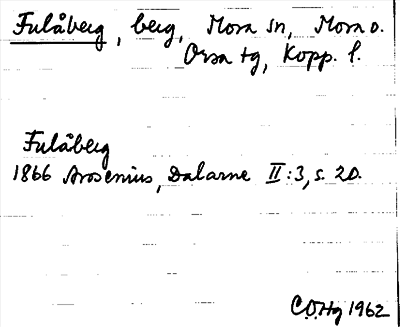 Fulåberg, berg, Mora sn, Mora o.
Orsa tg, Kopp. l.
Fulåberg
1866 Arosenius, Dalarne II:3, s. 20.
C.O.Hg 1962